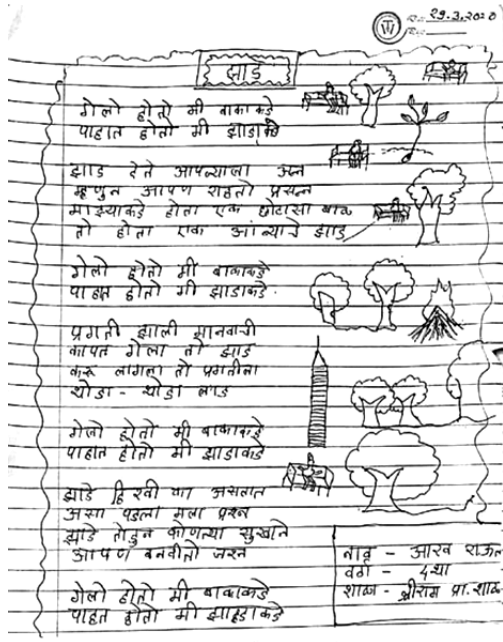 दि. 29.3.2020
झाड
गेलो होतो मी बाकाकडे
पाहात होतो मी झाडाकडे
झाड देते आपल्याला अन्न
म्हणुन आपण राहतो प्रसन्न
माझ्याकडे होता एक छोटासा बाळ
तो होता एक आंब्याचे झाड
गेलो होतो मी बाकाकडे
पाहत होतो मी झाडाकडे.
प्रगती झाली मानवाची
कापत गेला तो झाड
करू लागला तो प्रगतीला
थोडा - थोडा लाड
गेलो होतो मी बाकाकडे
पाहात होतो मी झाडाकडे
झाडे हिरवी का असतात
असा पडला मला प्रश्न
झाडे तोडुन कोणत्या सुखाने
आपण बनवीतो जश्न
गेलो होतो मी बाकाकडे
पाहत होतो मी झाडाकडे
नाव - आरव राऊत
वर्ग - 4था
शाळा - श्रीराम प्रा. शाळा